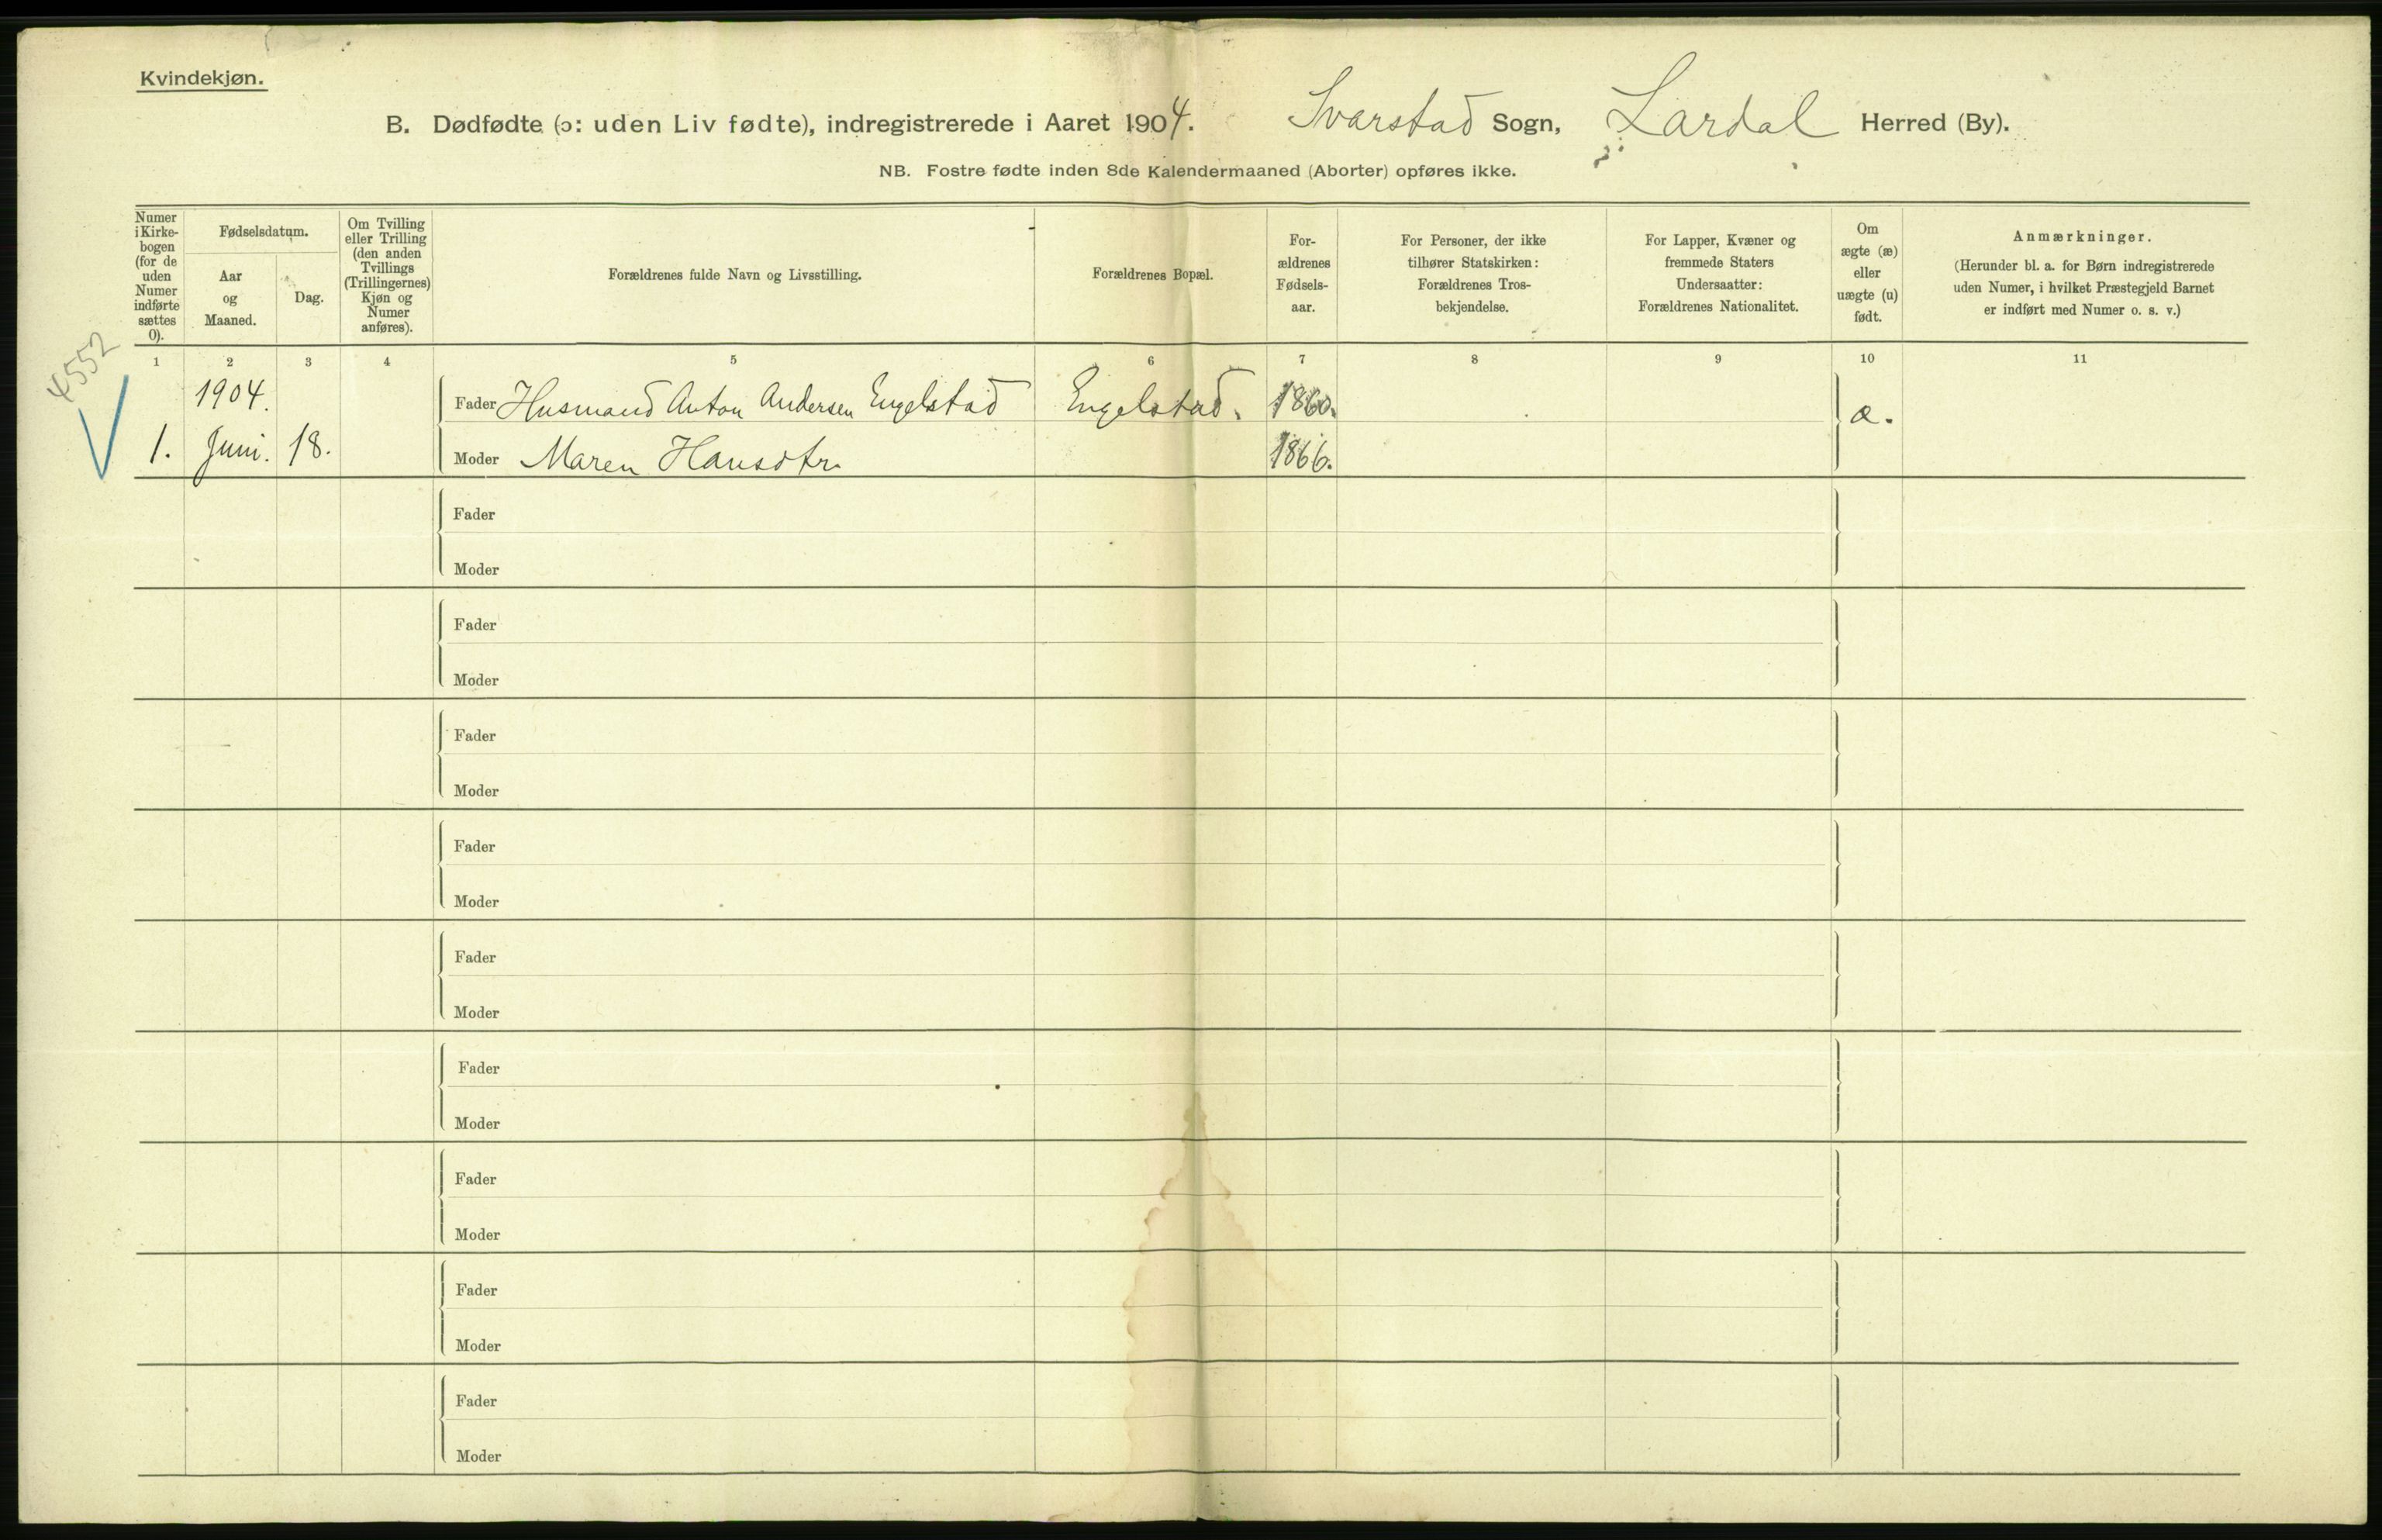 Kvindekjøn.
B. Dødfødte (ɔ: uden Liv fødte), indregistrerede i Aaret 1904. Svarstad Sogn, Lardal Herred (By).
NB. Fostre fødte inden 8de Kalendermaaned (Aborter) opføres ikke.
Numer
i Kirke-
bogen
(for de
uden
Numer
indførte
sættes
0).
Fødselsdatum.
Aar
og
Maaned.
Dag.
Om Tvilling
eller Trilling
(den anden
Tvillings
(Trillingernes)
Kjøn og
Numer
anføres).
Forældrenes fulde Navn og Livsstilling.
Forældrenes Bopæl.
For-
ældrenes
Fødsels-
aar.
For Personer, der ikke
tilhører Statskirken:
Forældrenes Tros-
bekjendelse.
For Lapper, Kvæner og
fremmede Staters
Undersaatter:
Forældrenes Nationalitet.
Om
ægte (æ)
eller
uægte (u)
født.
Anmærkninger.
(Herunder bl. a. for Børn indregistrerede
uden Numer, i hvilket Præstegjeld Barnet
er indført med Numer o. s. v.)
1 2 3 4 5 6 7 8 9 10 11
4552
1904. Fader Husmand Anton Andersen Engelstad Engelstad. 1860. æ.
1. Juni. 18. Moder Maren Hansdtr. 1866.
Fader
Moder
Fader
Moder
Fader
Moder
Fader
Moder
Fader
Moder
Fader
Moder
Fader
Moder
Fader
Moder
Fader
Moder